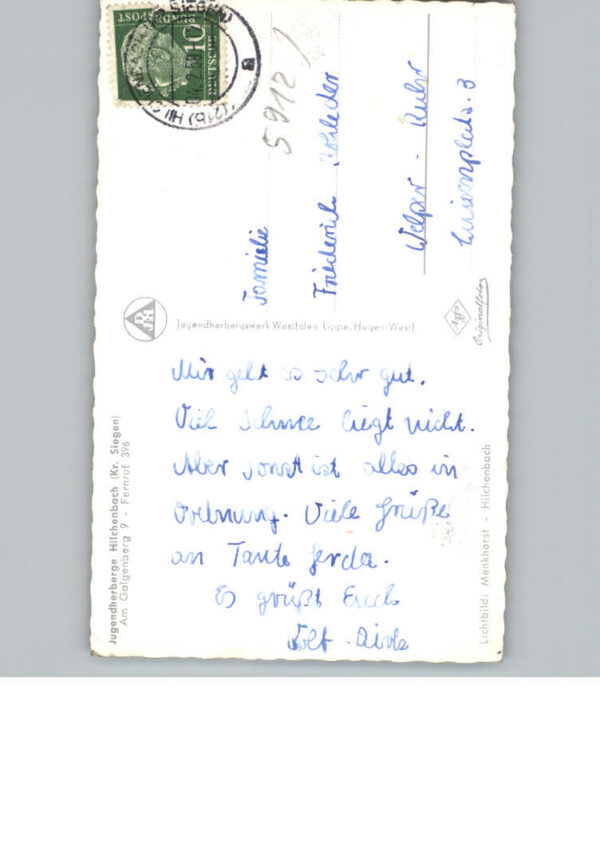 DEUTSCHE
BUNDESPOST
10
(21b) HILCHENBACH
SIEGEN)
a
5912
Familie
Friederich
Welper - Ruhr
3
DJH
Jugendherbergswerk Westfalen Lippe, Hagen Westf.
Agfa
Originalfoto
Mir geht es sehr gut.
Viel Schnee liegt nicht.
Aber sonst ist alles in
Ordnung. Viele Grüße
an Tante Gerda.
Es grüßt Euch
Jugendherberge Hilchenbach (Kr. Siegen)
Am Galgenberg 9 - Fernruf 396
Lichtbild: Menkhorst - Hilchenbach